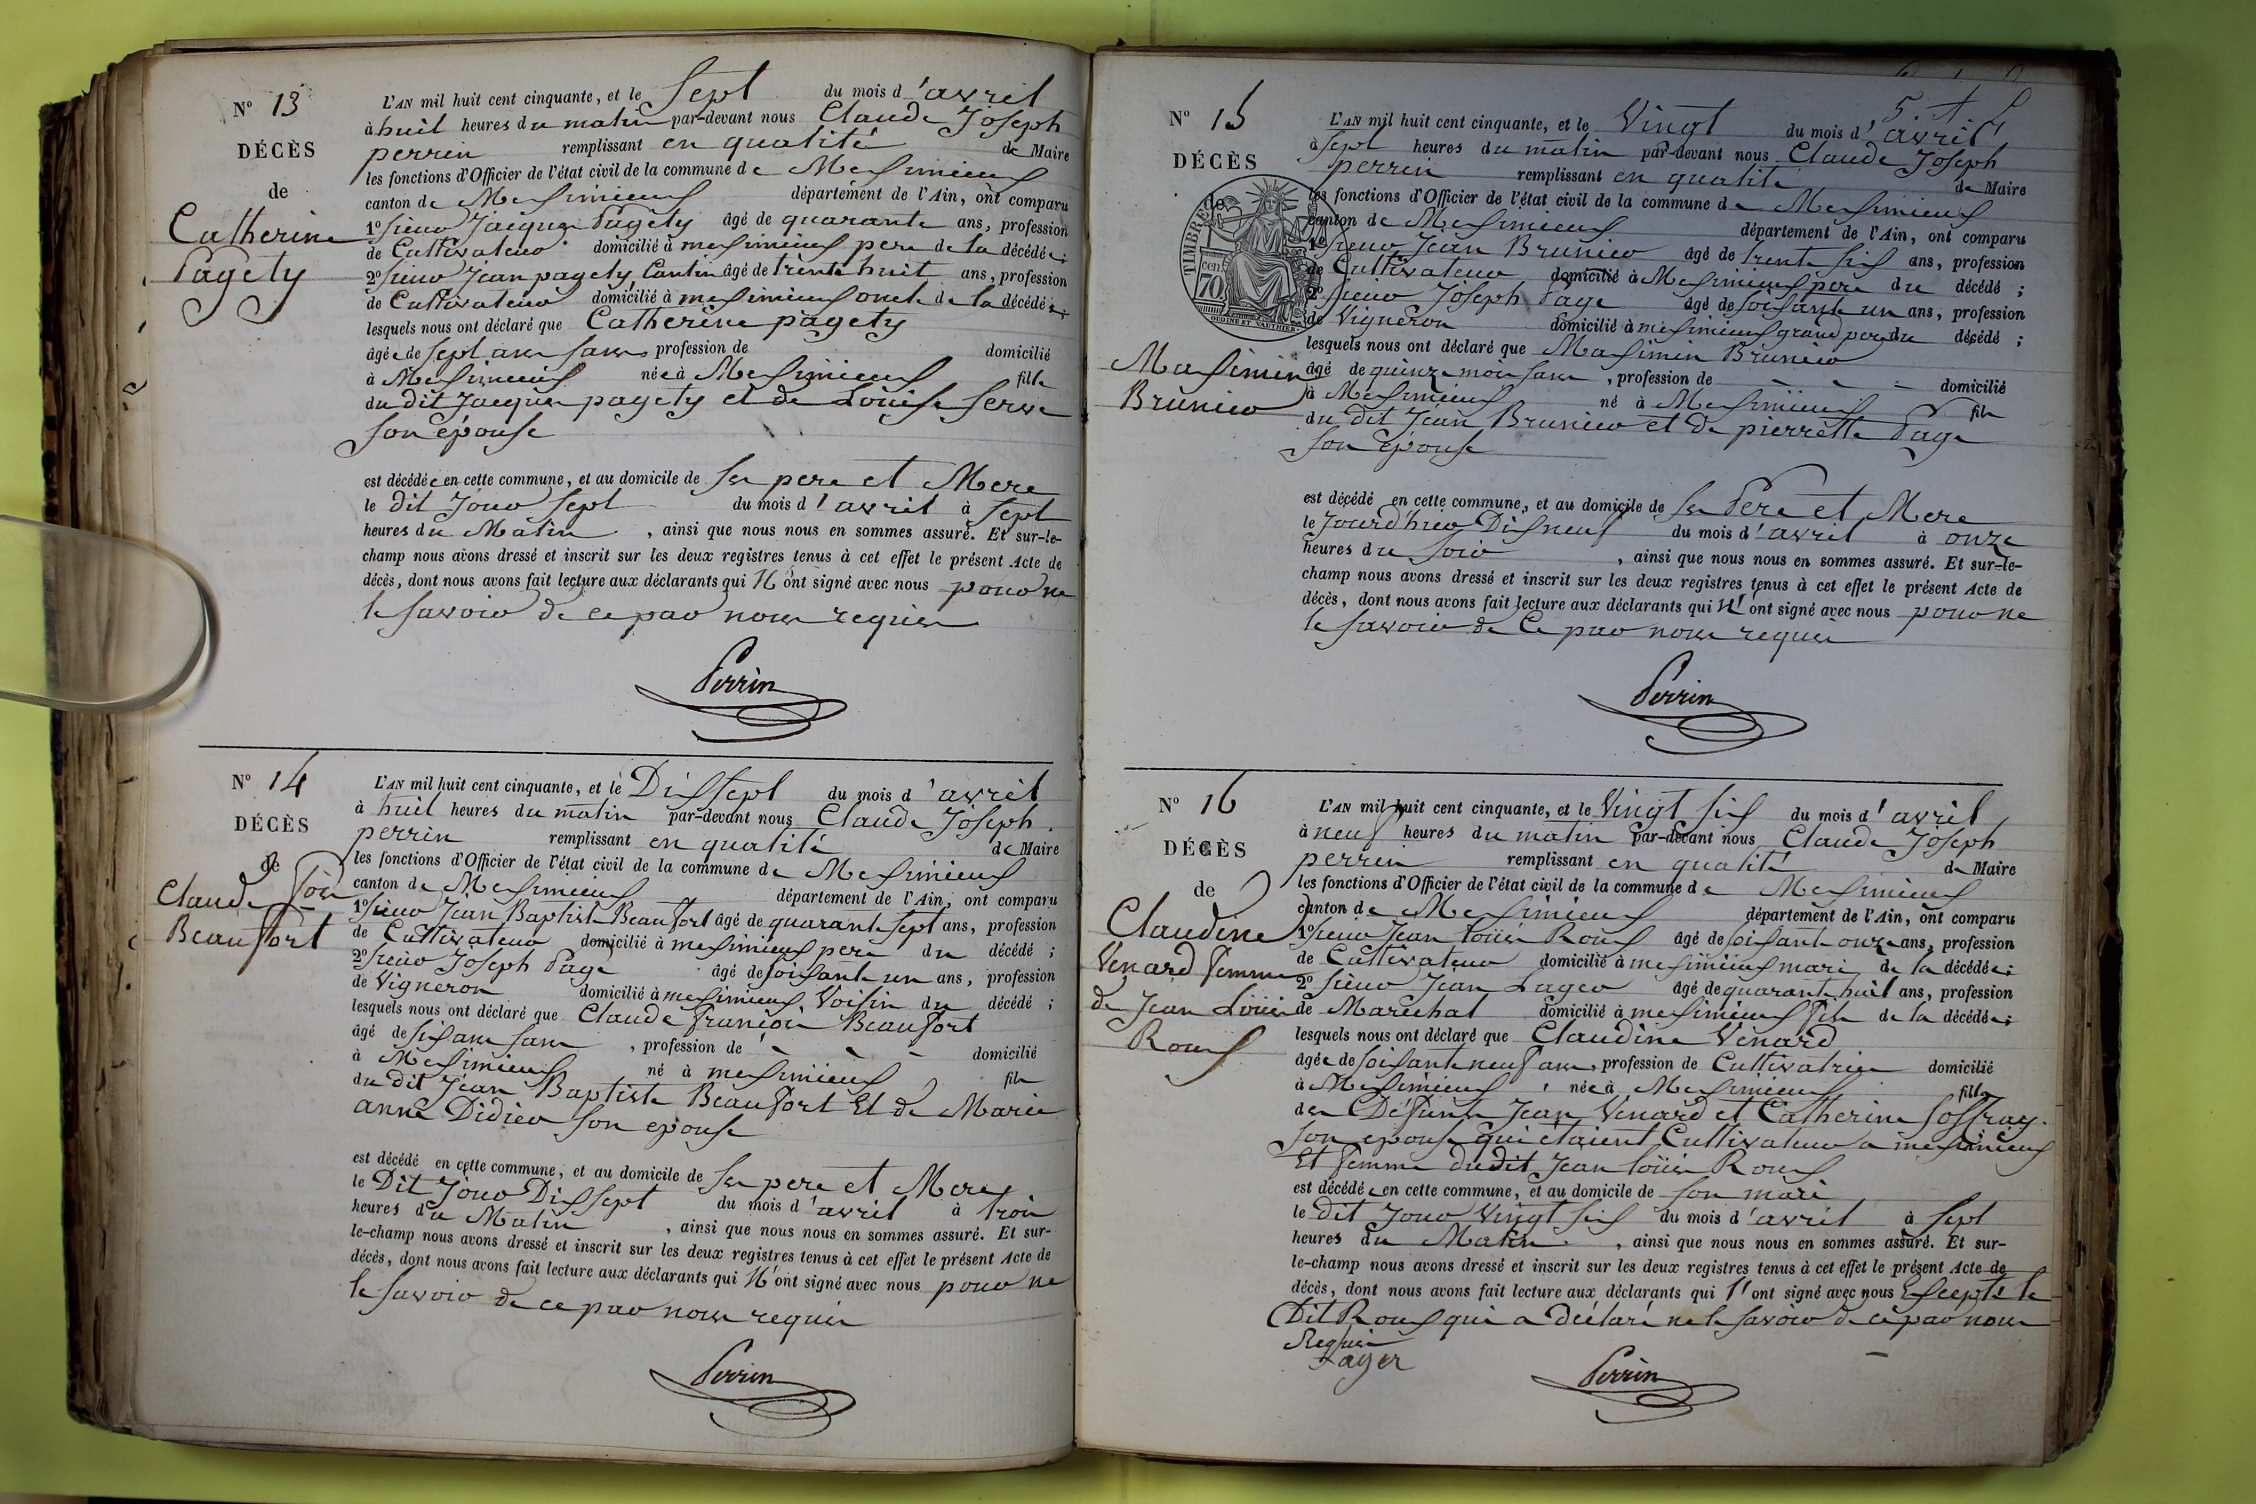 N° 13
DÉCÈS
de
Catherine
Pagety
L'AN mil huit cent cinquante, et le Sept du mois d'avril
à huit heures du matin par-devant nous Claude Joseph
perrin remplissant en qualité de Maire
les fonctions d'Officier de l'état civil de la commune de Messimieux
canton de Messimieux département de l'Ain, ont comparu
1° sieur Jacques Pagety âgé de quarante ans, profession
de Cultivateur domicilié à messimieux pere de la décédée;
2° sieur Jean pagety Cantin âgé de trente huit ans, profession
de Cultivateur domicilié à messimieux oncle de la décédée;
lesquels nous ont déclaré que Catherine pagety
âgée de sept ans sans profession de domicilié
à Messimieux née à Messimieux fille
du dit Jacques pagety et de Louise Serve
son épouse
est décédée en cette commune, et au domicile de ses pere et Mere
le dit Jour sept du mois d'avril à sept
heures du Matin, ainsi que nous nous en sommes assuré. Et sur-le-
champ nous avons dressé et inscrit sur les deux registres tenus à cet effet le présent Acte de
décès, dont nous avons fait lecture aux déclarants qui N'ont signé avec nous pour ne
le savoir de ce par nous requis
Perrin
N° 14
DÉCÈS
de
Claude Fois
Beaufort
L'AN mil huit cent cinquante, et le Dissept du mois d'avril
à huit heures du matin par-devant nous Claude Joseph
perrin remplissant en qualité de Maire
les fonctions d'Officier de l'état civil de la commune de Messimieux
canton de Messimieux département de l'Ain, ont comparu
1° sieur Jean Baptiste Beaufort âgé de quarante sept ans, profession
de Cultivateur domicilié à messimieux pere du décédé;
2° sieur Joseph Page âgé de soisante un ans, profession
de Vigneron domicilié à messimieux Voisin du décédé;
lesquels nous ont déclaré que Claude françois Beaufort
âgé de six ans sans, profession de domicilié
à Messimieux né à messimieux fils
du dit Jean Baptiste Beaufort Et de Marie
anne Didier son epouse
est décédé en cette commune, et au domicile de ses pere et Mere
le Dit Jour Dissept du mois d'avril à trois
heures du Matin, ainsi que nous nous en sommes assuré. Et sur-
le-champ nous avons dressé et inscrit sur les deux registres tenus à cet effet le présent Acte de
décès, dont nous avons fait lecture aux déclarants qui N'ont signé avec nous pour ne
le savoir de ce par nous requis
Perrin
N° 15
DÉCÈS
de
TIMBRE
70 cen.
OUDINÉ ET VAUTHIER
Masimin
Brunier
L'AN mil huit cent cinquante, et le Vingt du mois d'avril
à sept heures du matin par-devant nous Claude Joseph
perrin remplissant en qualité de Maire
les fonctions d'Officier de l'état civil de la commune de Messimieux
canton de Messimieux département de l'Ain, ont comparu
1° sieur Jean Brunier âgé de trente six ans, profession
de Cultivateur domicilié à Messimieux pere du décédé;
2° sieur Joseph Page âgé de soisante un ans, profession
de Vigneron domicilié à messimieux grand pere du décédé;
lesquels nous ont déclaré que Masimin Brunier
âgé de quinze mois sans, profession de domicilié
à Messimieux né à Messimieux fils
du dit Jean Brunier et de pierrette Page
son Epouse
est décédé en cette commune, et au domicile de ses Pere et Mere
le Jourd'hier Disneuf du mois d'avril à onze
heures du soir, ainsi que nous nous en sommes assuré. Et sur-le-
champ nous avons dressé et inscrit sur les deux registres tenus à cet effet le présent Acte de
décès, dont nous avons fait lecture aux déclarants qui N'ont signé avec nous pour ne
le savoir de Ce par nous requis
Perrin
N° 16
DÉCÈS
de
Claudine
Venard femme
de Jean Loüis
Roux
L'AN mil huit cent cinquante, et le Vingt six du mois d'avril
à neuf heures du matin par-devant nous Claude Joseph
perrin remplissant en qualité de Maire
les fonctions d'Officier de l'état civil de la commune de Messimieux
canton de Messimieux département de l'Ain, ont comparu
1° sieur Jean loüis Roux âgé de soisante onze ans, profession
de Cultivateur domicilié à messimieux mari de la décédée;
2° sieur Jean Lager âgé de quarante huit ans, profession
de Marechal domicilié à messimieux fils de la décédée;
lesquels nous ont déclaré que Claudine Venard
âgée de soisante neuf ans, profession de Cultivatrice domicilié
à Messimieux, née à Messimieux fille
des Défunts Jean Venard et Catherine Soffray
son epouse qui étaient Cultivateur a messimieux
Et femme du dit Jean loüis Roux
est décédée en cette commune, et au domicile de son mari
le dit Jour Vingt six du mois d'avril à sept
heures du Matin, ainsi que nous nous en sommes assuré. Et sur-
le-champ nous avons dressé et inscrit sur les deux registres tenus à cet effet le présent Acte de
décès, dont nous avons fait lecture aux déclarants qui l'ont signé avec nous Excepté le
Dit Roux qui a déclaré ne le savoir de ce par nous
Requis
Lager
Perrin